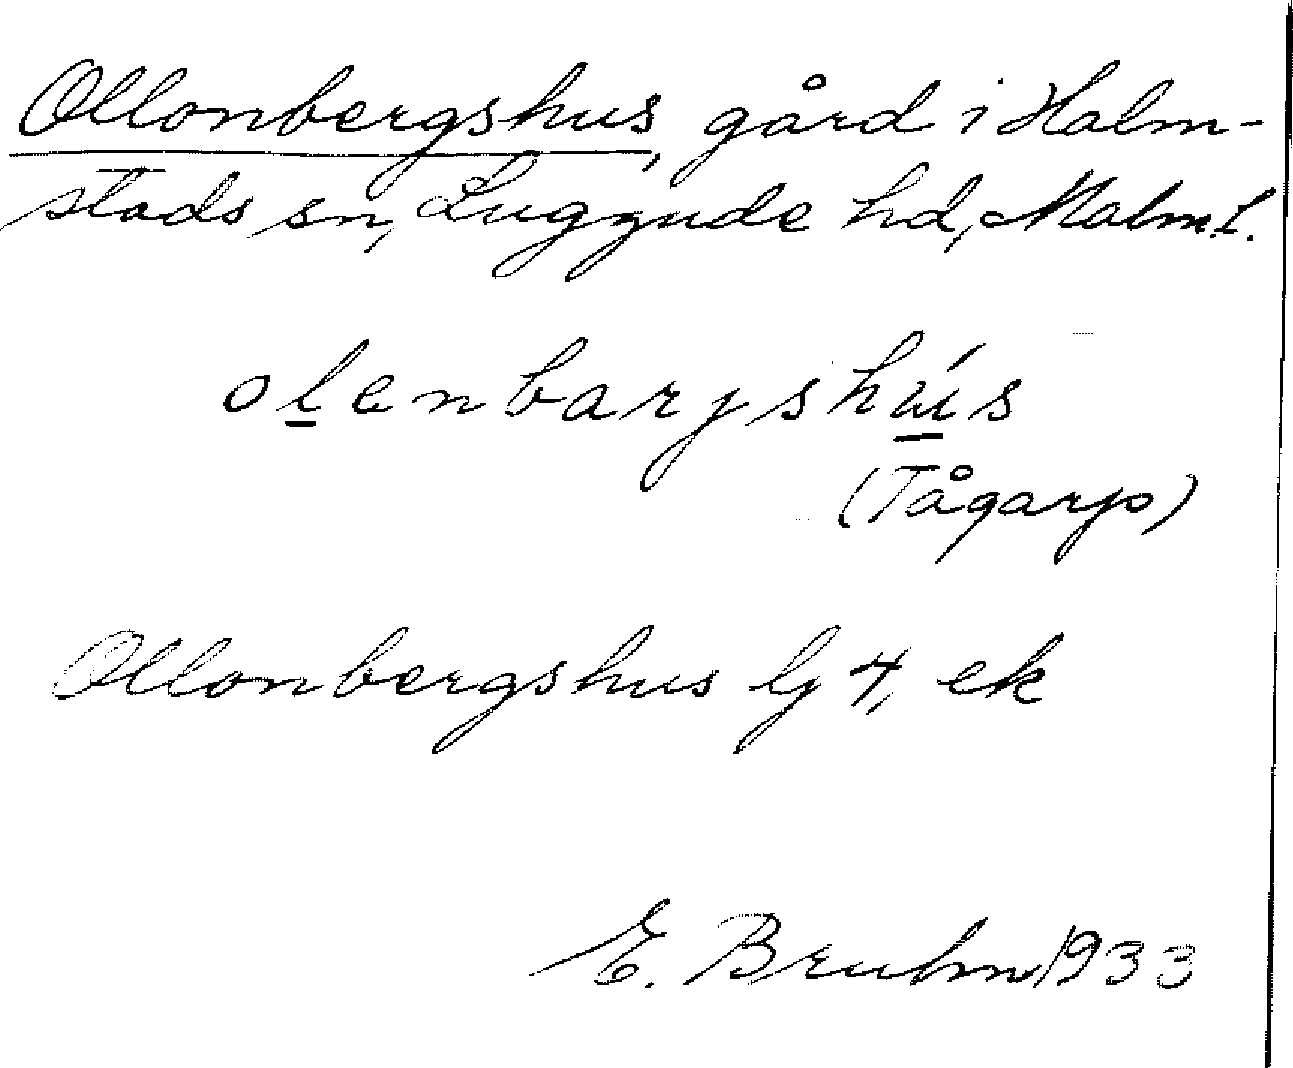 Ollonbergshus, gård i Halm-
stads sn, Luggude hd, Malm. l.
olenbarjshús
(Tågarp)
Ollonbergshus lj 4, ek
E. Bruhn 1933